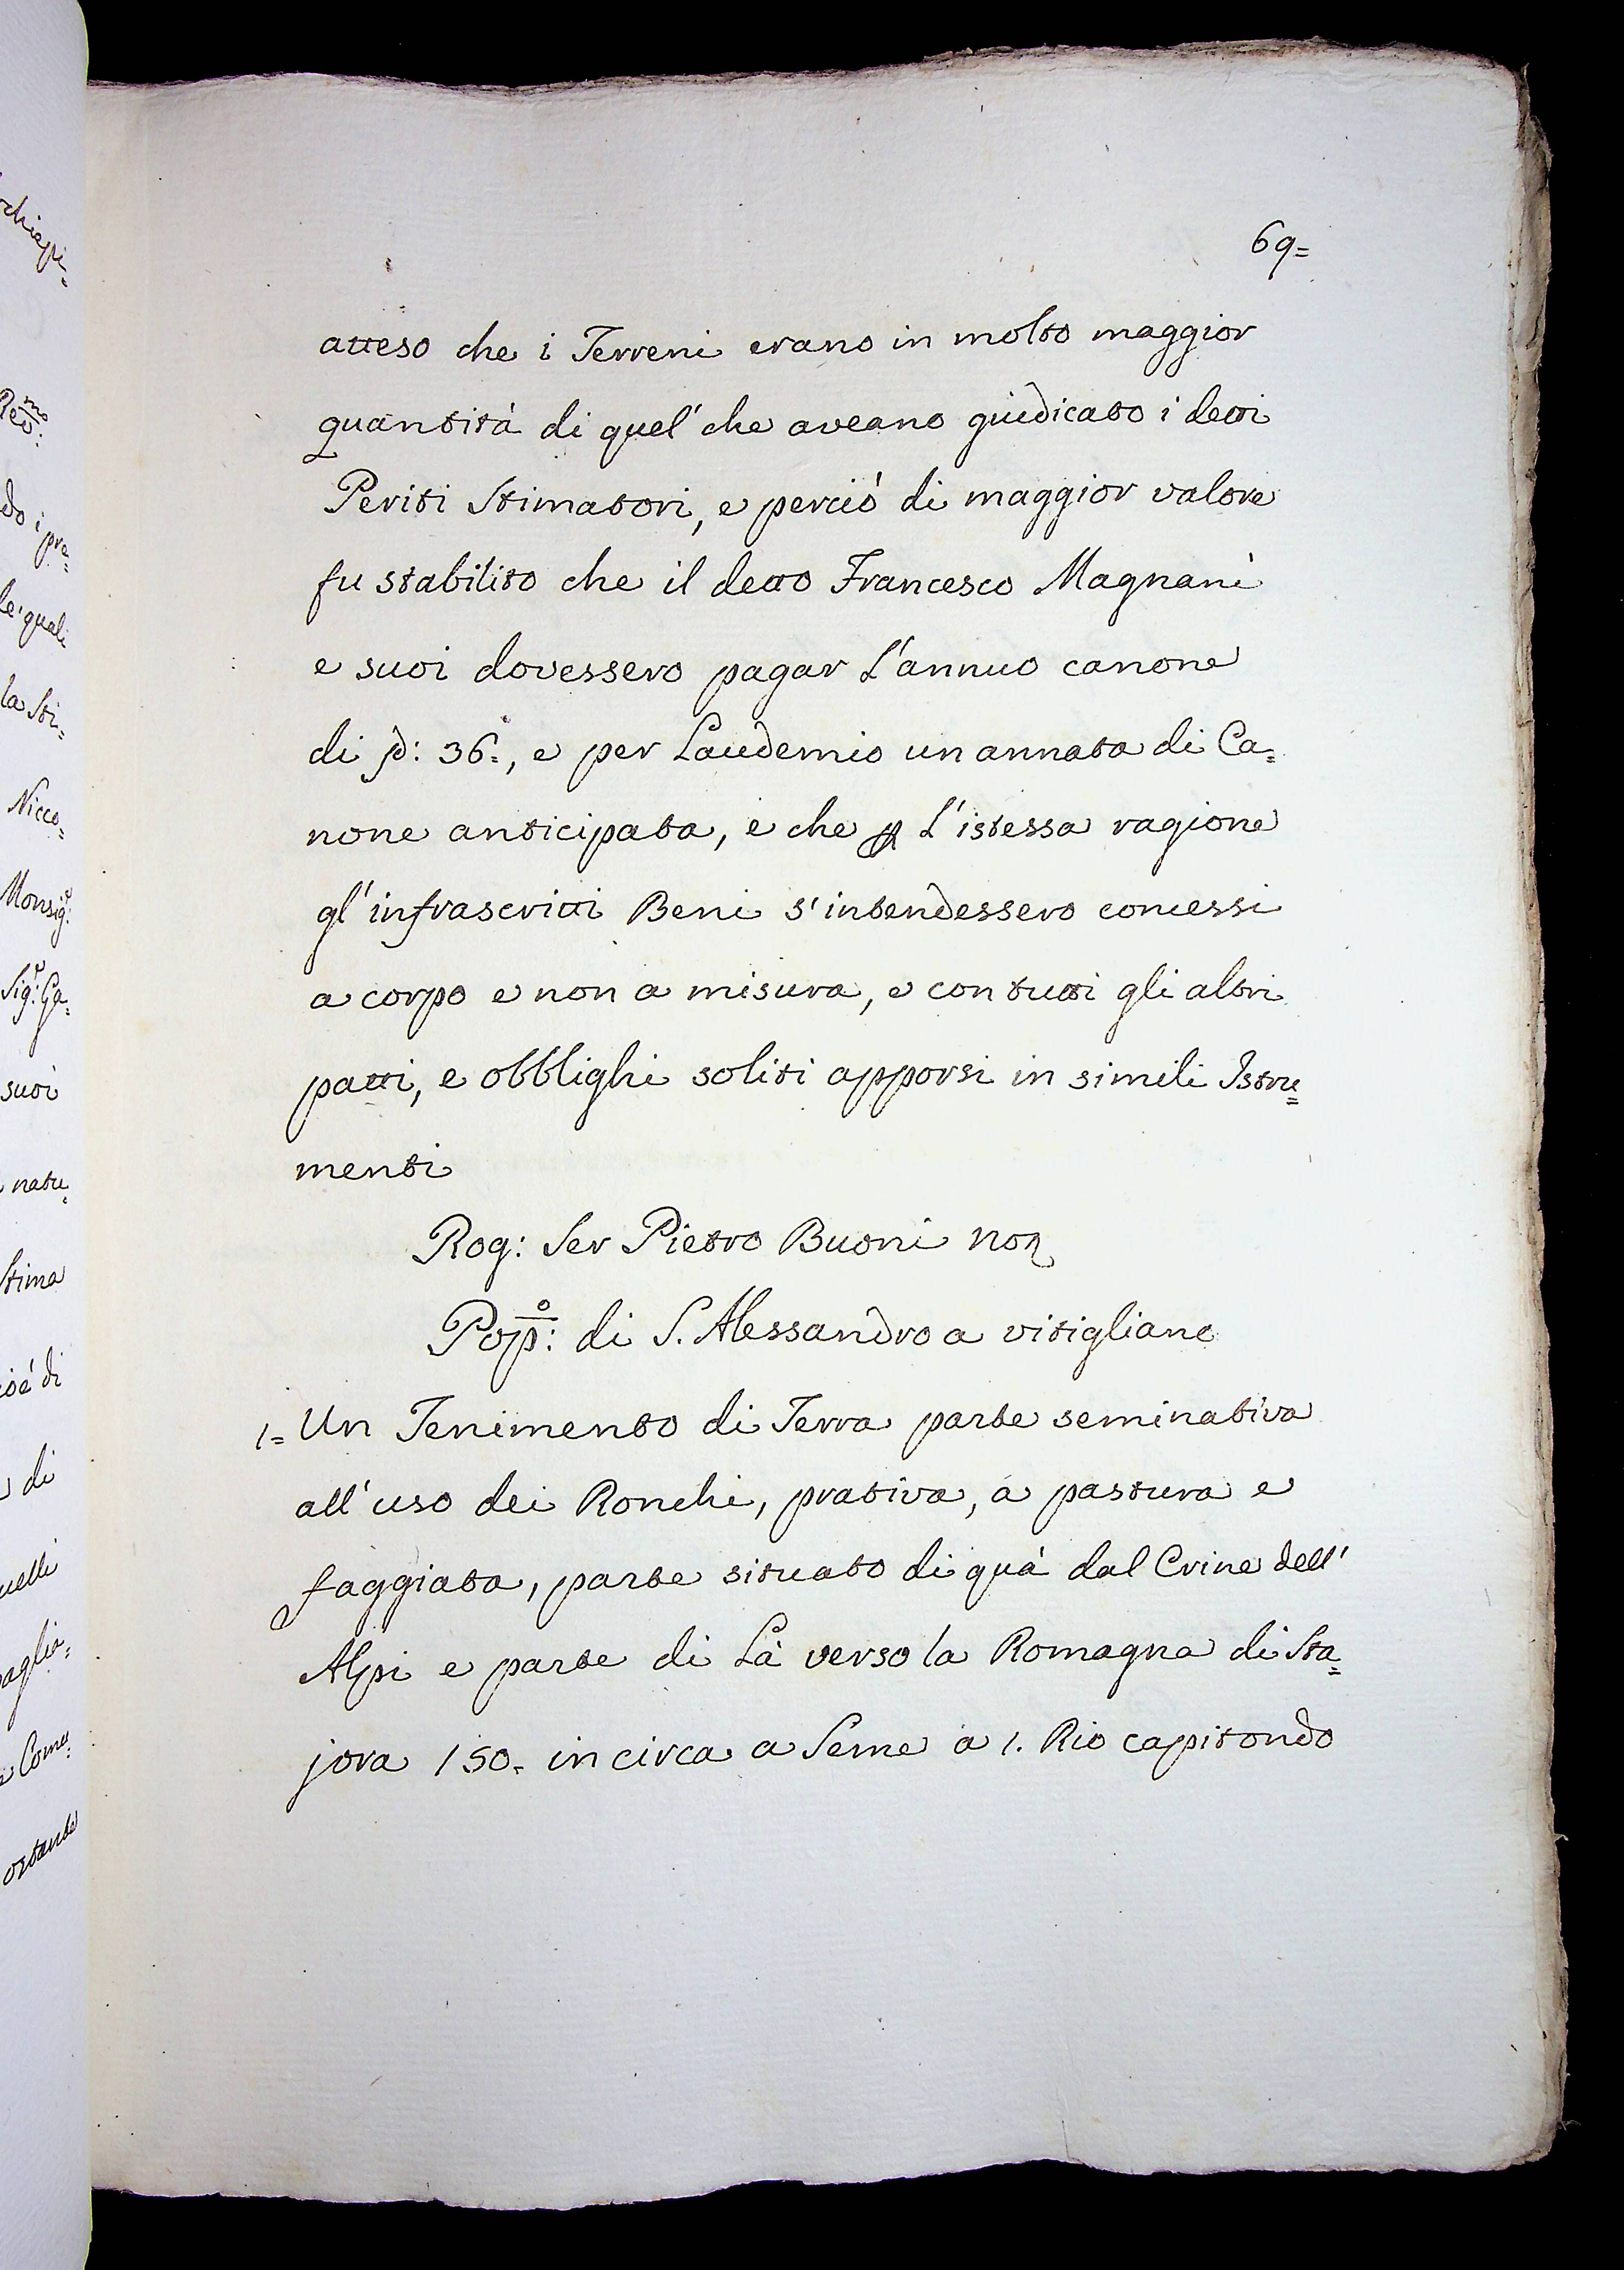 69=
atteso che i Terreni erano in molto maggior
quantità di quel' che aveano giudicato i detti
Periti Stimatori, e perciò di maggior valore
fu stabilito che il detto Francesco Magnani
e suoi dovessero pagar L'annuo canone
di 36=, e per Laudemio un annata di Ca=
none anticipata, e che L'istessa ragione
gl'infrascritti Beni s'intendessero concessi
a corpo e non a misura, e con tutti gli altri
patti, e obblighi soliti apporsi in simili Istru=
menti
Rog: Ser Pietro Buoni
Pop:º di S. Alessandro a vitigliano
1= Un Tenimento di Terra parte seminativa
all'uso dei Ronchi, prativa, a pastura e
faggiata, parte situato di quà dal Crine dell'
Alpi e parte di Là verso la Romagna di Sta=
jora 150= in circa a Seme a 1. Rio capitondo
Nicco=
le' quali
la Sti=
suoi
natu=
Stima
di